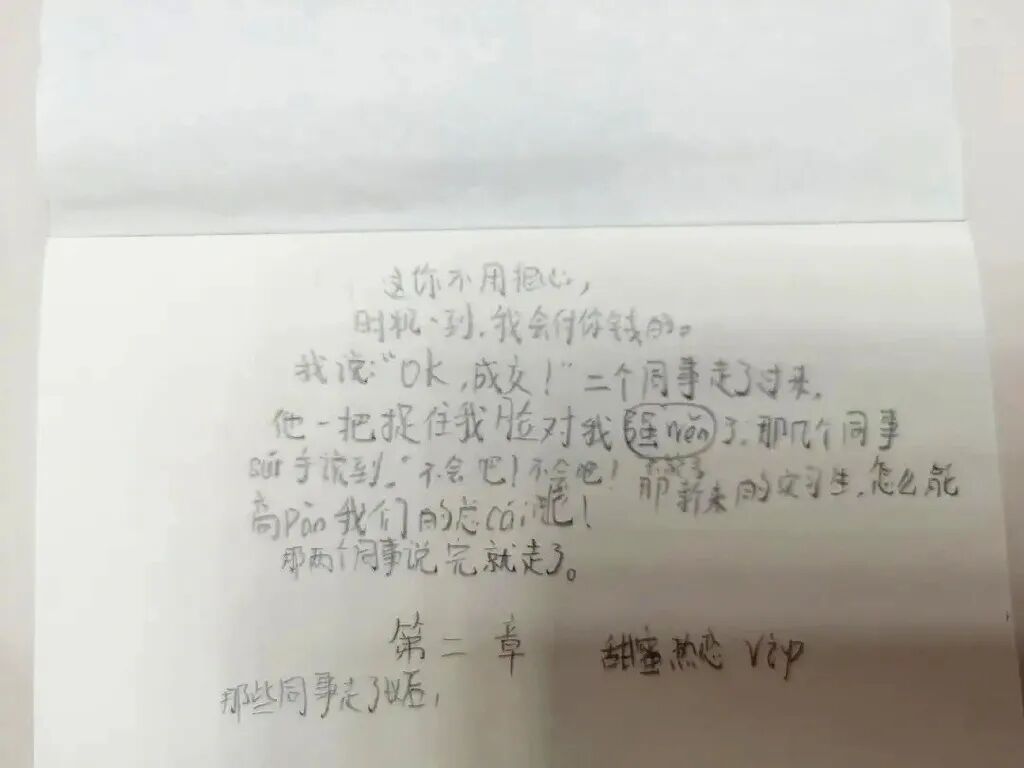 这你不用担心,
时机一到,我会付你钱的。
我说:“OK,成交!”二个同事走了过来,
他一把捉住我脸对我 了,那几个同事
手说到:“不会吧!不会吧!那新来的实习生,怎么能
高pān我们的总cái呢!
那两个同事说完就走了。
第二章 甜蜜热恋 vip
那些同事走了后,